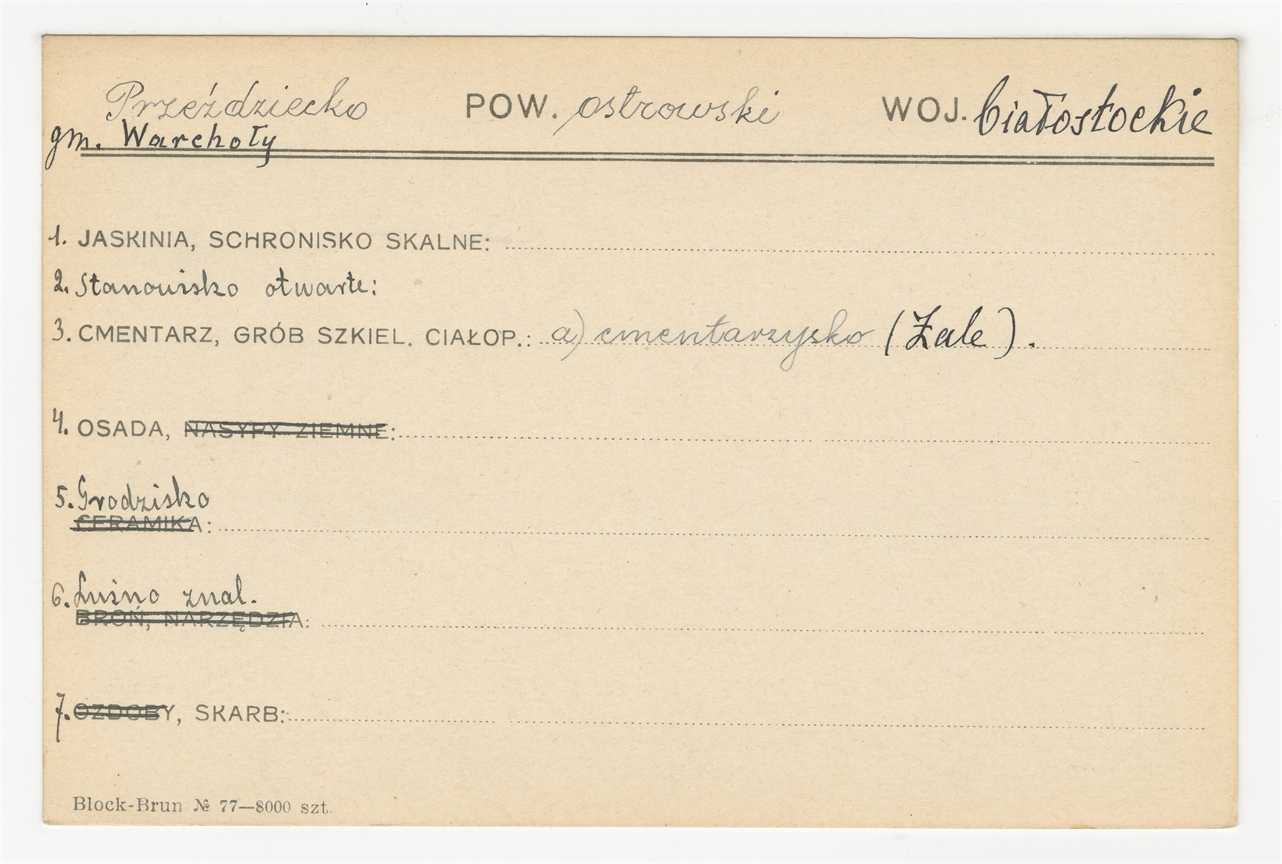 Przeździecko POW. ostrowski WOJ. białostockie
gm. Warchoły
1. JASKINIA, SCHRONISKO SKALNE:
2. Stanowisko otwarte:
3. CMENTARZ, GRÓB SZKIEL. CIAŁOP.: a) cmentarzysko (Żale).
4. OSADA, NASYPY ZIEMNE:
5. Grodzisko
CERAMIKA:
6. Luźno znal.
BROŃ, NARZĘDZIA:
7. OZDOBY, SKARB:
Block-Brun № 77—8000 szt.